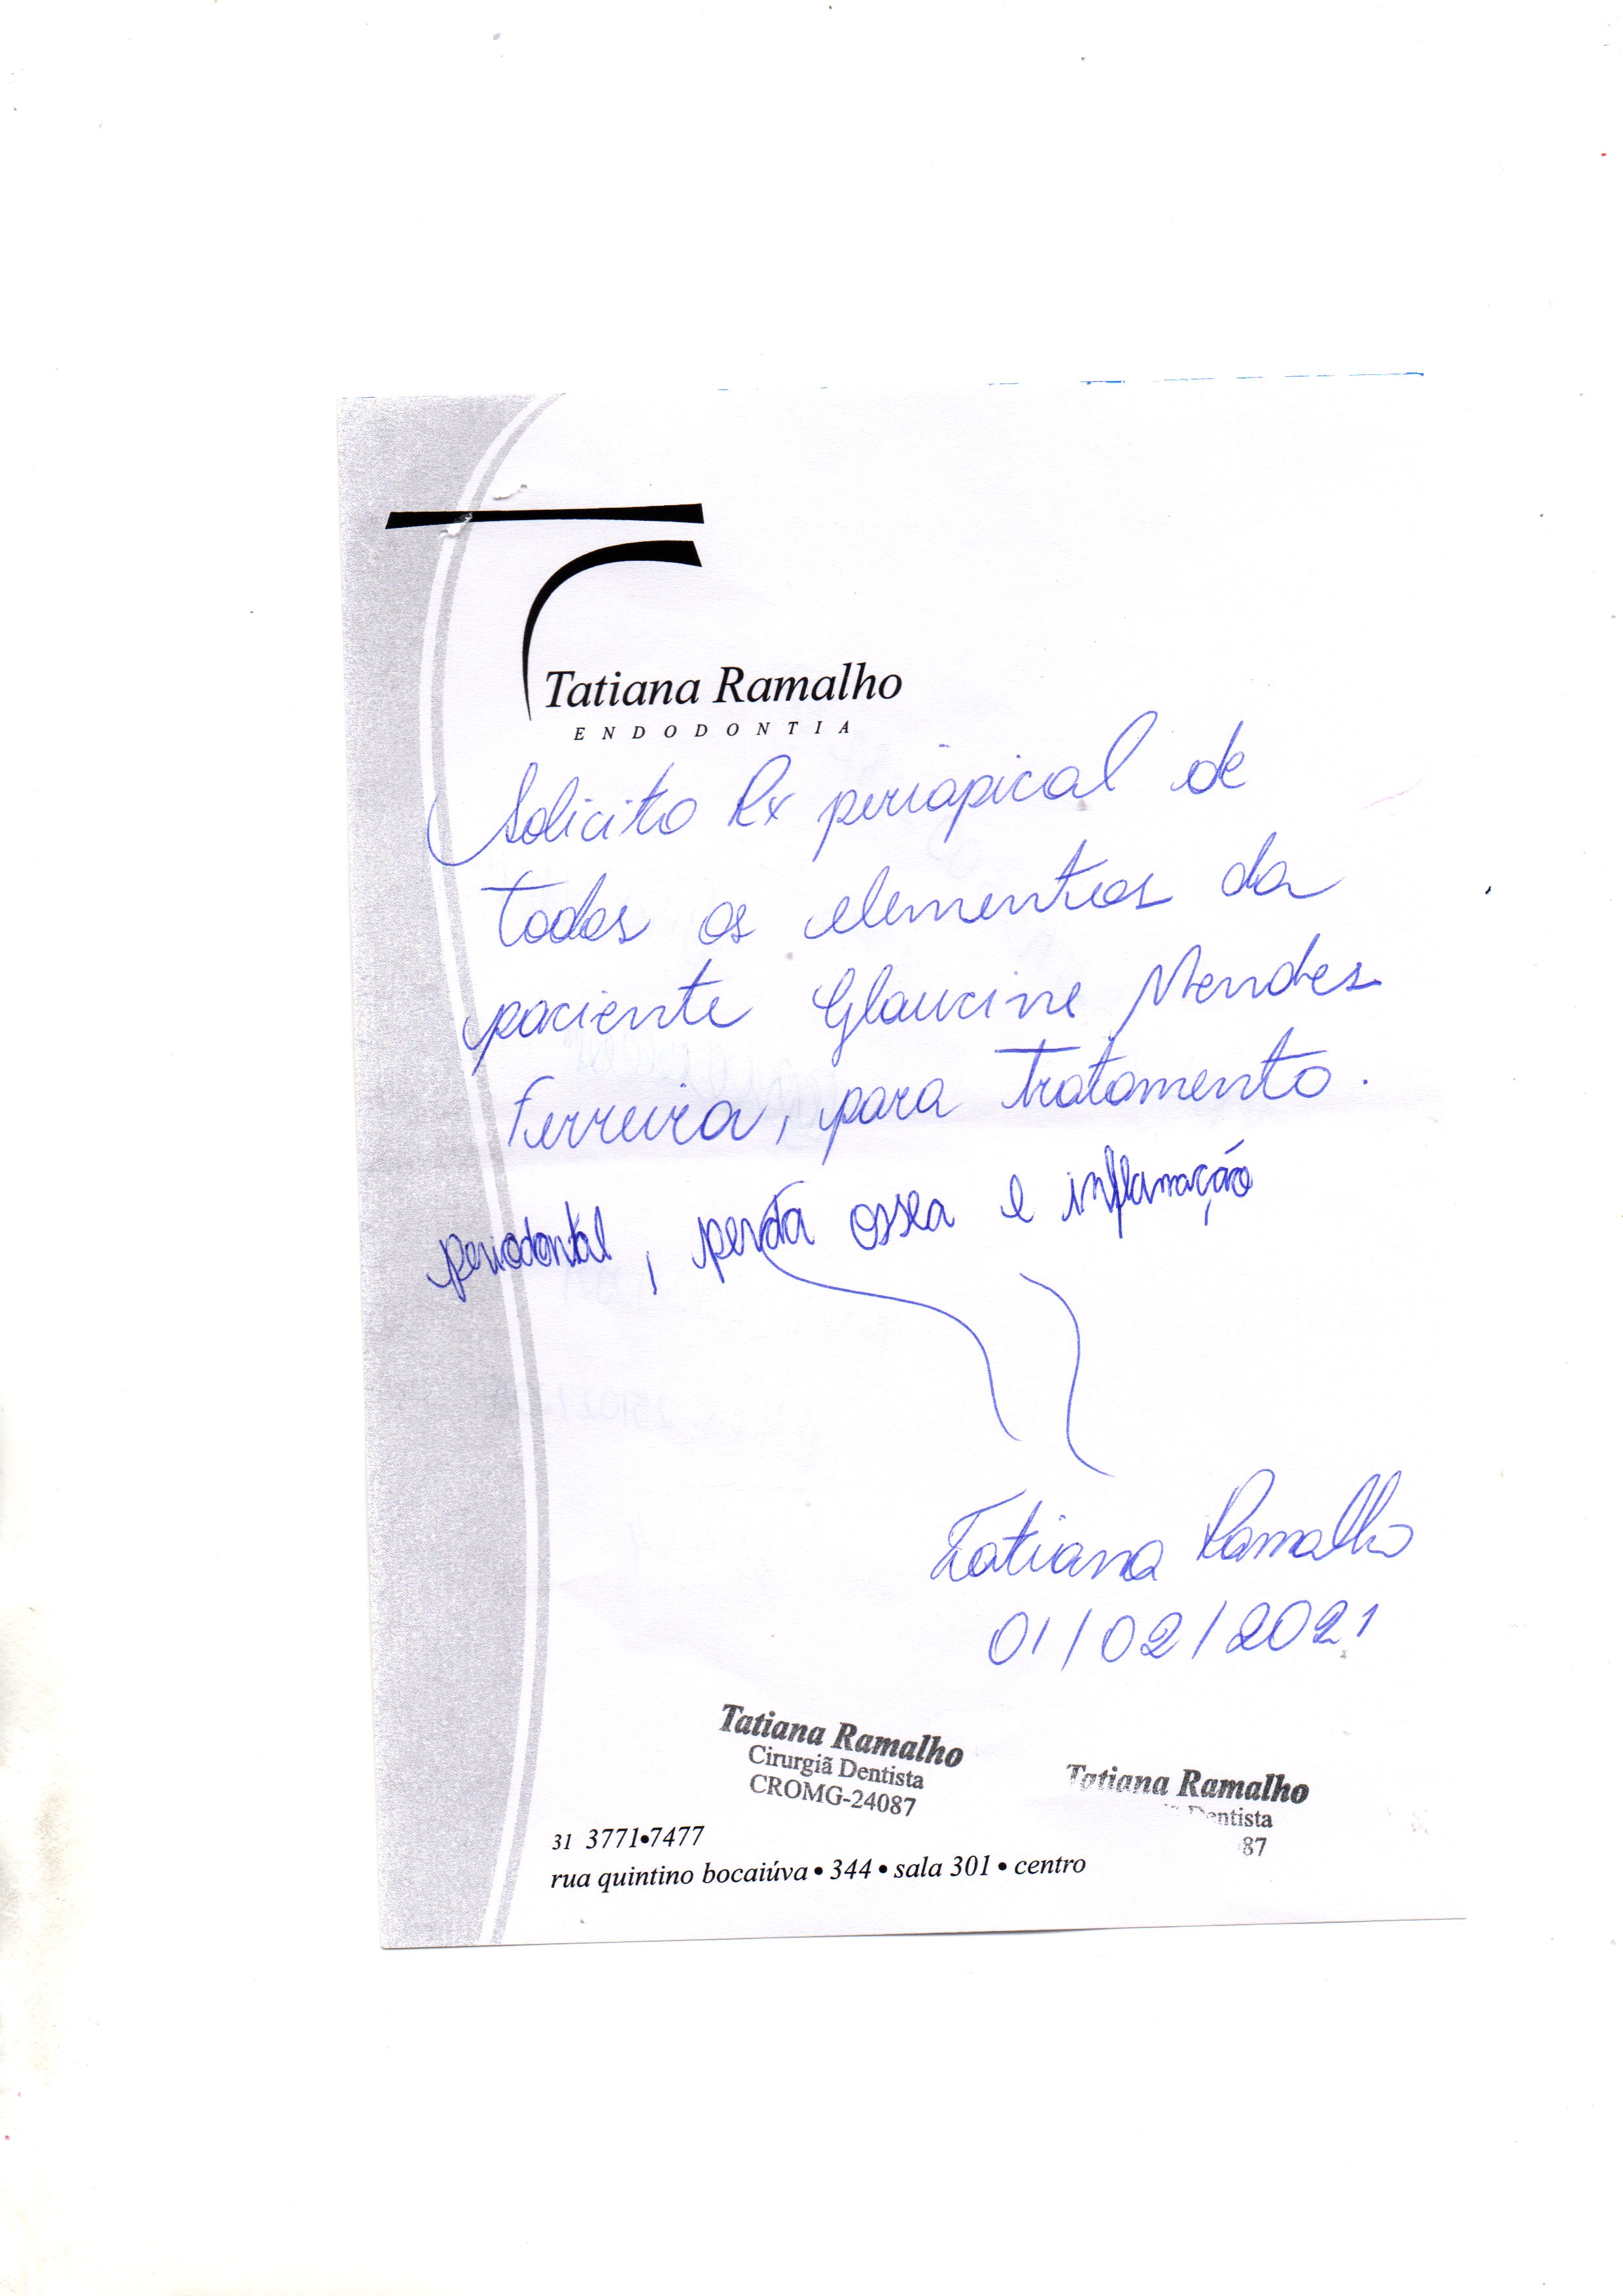 Tatiana Ramalho
ENDODONTIA
Solicito Rx periapical de
todos os elementos da
paciente Glaucine Mendes
Ferreira, para tratamento.
periodontal, perda ossea e inflamação
Tatiana Ramalho
01/02/2021
Tatiana Ramalho
Cirurgiã Dentista
CROMG-24087
Tatiana Ramalho
Dentista
87
31 3771•7477
rua quintino bocaiúva • 344 • sala 301 • centro